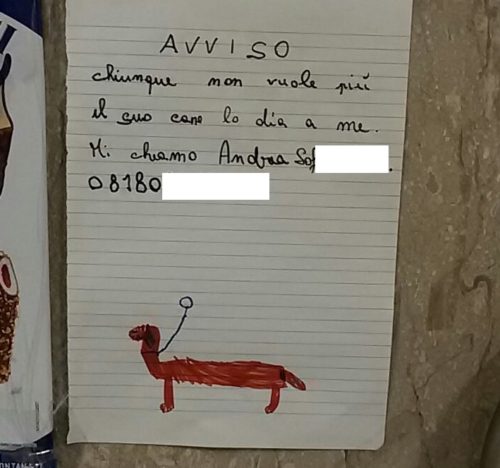 AVVISO
chiunque non vuole più
il suo cane lo dia a me.
Mi chiamo Andrea
08180